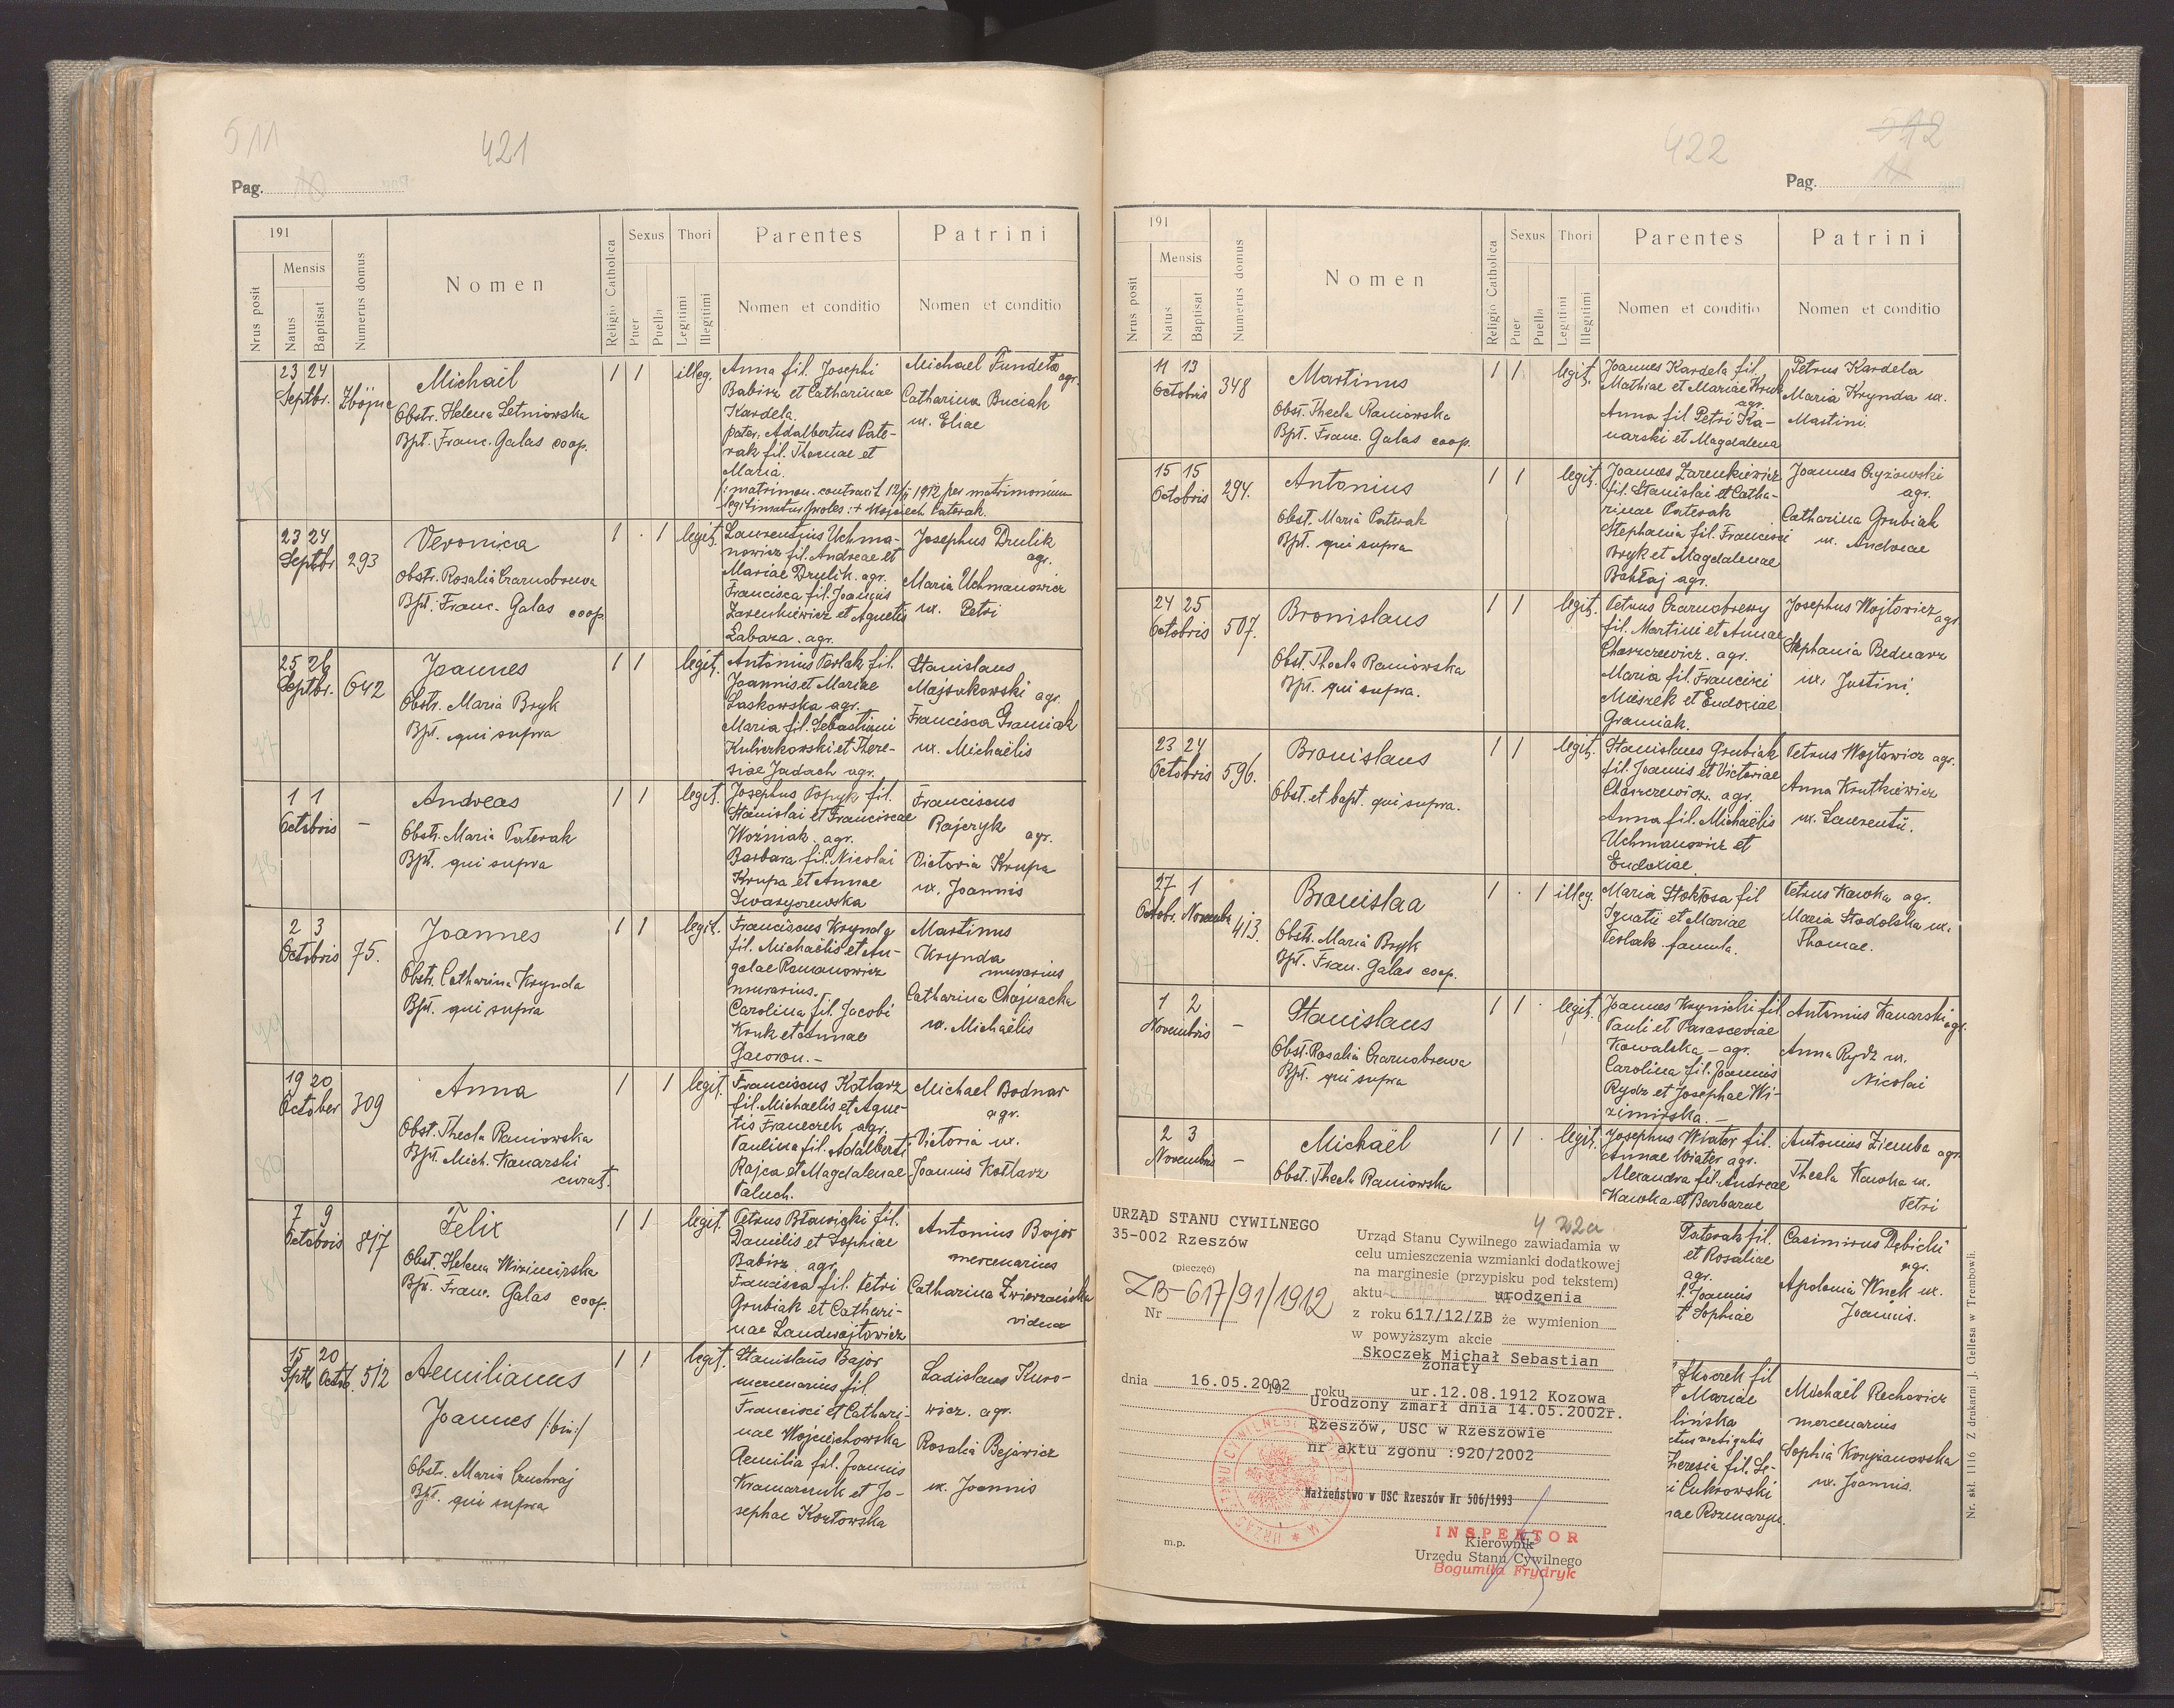 511
421
Pag.
191
Mensis
Nrus posit
Natus
Baptisat
Numerus domus
Nomen
Religio Catholica
Sexus
Puer
Puella
Thori
Legitimi
Illegitimi
Parentes
Nomen et conditio
Patrini
Nomen et conditio
23 24
Septbr.
Zbójna
Michaël
Obstr. Helena Letniowska
Bpt. Franc. Galas coop.
1 1
illeg.
Anna fil. Josephi
Babirz et Catharinae
Kardela.
pater. Adalbertus Pate-
rak fil. Thomae et
Maria.
Michael Fundeta
agr.
Catharina Buciak
ux. Eliae
matrimon. contraxit 1912 per matrimonium
legitimatur proles
23 24
Septbr.
293
Veronica
Obstr. Rosalia Czarnobrewa
Bpt. Franc. Galas coop.
1 . 1
legit.
Laurentius Uchma-
nowicz fil. Andreae et
Mariae Drulik. agr.
Francisca fil. Joannis
Zarenkiewicz et Agnetis
Łabaza. agr.
Josephus Drulik
agr.
Maria Uchmanowicz
ux. Petri
25 26
Septbr.
642
Joannes
Obstr. Maria Bryk
Bpt. qui supra
1 1
legit.
Antonius Terlak fil.
Joannis et Mariae
Laskowska agr.
Maria fil. Sebastiani
et There-
siae Jadach agr.
Stanislaus
agr.
Francisca Gramiak
ux. Michaëlis
1 1
Octobris
–
Andreas
Obstr. Maria Paterak
Bpt. qui supra
1 1
legit.
Josephus Popyk fil.
Stanislai et Franciscae
Woźniak. agr.
Barbara fil. Nicolai
Krupa et Annae
Franciscus
Rajczyk agr.
Victoria Krupa
ux. Joannis
2 3
Octobris
75.
Joannes
Obstr. Catharina Krynda
Bpt. qui supra
1 1
legit.
Franciscus Krynda
fil. Michaëlis et An-
galae Romanowicz
murarius.
Carolina fil. Jacobi
Kruk et Annae
Gaworon. –
Martinus
Krynda
murarius
Catharina Chojnacka
ux. Michaëlis
19 20
October
309
Anna
Obst. Thecla Raniowska
Bpt. Mich. Kanarski
curat.
1 1
legit.
Franciscus Kotlarz
fil. Michaelis et Agne-
tis Franeczek agr.
Paulina fil. Adalberti
Rajca et Magdalenae
Paluch.
Michael Bodnar
agr.
Victoria ux.
Joannis Kotlarz
7 9
Octobris
817
Felix
Obst. Helena Wizimirska
Bpt. Franc. Galas coop.
1 1
legit.
Petrus Bławicki fil.
Danielis et Sophiae
Babirz. agr.
Francisca fil. Petri
Grubiak et Cathari-
nae Landwójtowicz
Antonius Bajor
mercenarius
Catharina
vidua
15 20
Sptb. Octob.
512
Aemilianus
Joannes /:bin:/
Obstr. Maria Czuchraj
Bpt. qui supra
1 1
legit.
Stanislaus Bajor
mercenarius fil
Francisci et Cathari-
nae Wojciechowska
Aemilia fil. Joannis
Kramarczuk et Jo-
sephae Kozłowska
Ladislaus Kuro-
wicz. agr.
Rosalia Bejawicz
ux. Joannis
422
512
Pag.
191
Mensis
Nrus posit
Natus
Baptisat
Numerus domus
Nomen
Religio Catholica
Sexus
Puer
Puella
Thori
Legitimi
Illegitimi
Parentes
Nomen et conditio
Patrini
Nomen et conditio
11 13
Octobris
348
Martinus
Obst. Thecla Raniowska
Bpt. Franc. Galas coop.
1 1
legit.
Joannes Kardela fil.
Mathiae et Mariae Kruk
agr.
Anna fil Petri Ka-
narski et Magdalena
Petrus Kardela
Maria Krynda ux.
Martini.
15 15
Octobris
294.
Antonius
Obst. Maria Paterak
Bpt. qui supra
1 1
legit.
Joannes Zarenkiewicz
fil. Stanislai et Catha-
rinae Paterak
Stephania fil. Francisci
Bryk et Magdalenae
Bahłaj agr.
Joannes Cryżowski
agr.
Catharina Grubiak
ux. Andreae
24 25
Octobris
507.
Bronislaus
Obst. Thecla Raniowska
Bpt. qui supra.
1 1
legit.
Petrus Czarnobrewy
fil. Martini et Annae
Chaszczewicz. agr.
Maria fil. Francisci
et Eudoxiae
Gramiak.
Josephus Wojtowicz
agr
Stephania Bednarz
ux. Justini.
23 24
Octobris
596.
Bronislaus
Obst. et bapt. qui supra.
1 1
legit.
Stanislaus Grubiak
fil. Joannis et Victoriae
Chaszczewicz. agr.
Anna fil. Michaëlis
Uchmanowicz et
Eudoxiae.
Petrus Wojtowicz agr.
Anna Krutkiewicz
ux. Laurentii.
27 1
Octobr. Novembr
413.
Bronislaa
Obstr. Maria Bryk
Bpt. Fran. Galas coop.
1 . 1
illeg.
Maria Stokłosa fil
Ignatii et Mariae
Terlak. famula.
Petrus Kawka agr.
Maria Stodolska ux.
Thomae.
1 2
Novembris
–
Stanislaus
Obst. Rosalia Czarnobrewa
Bpt. qui supra
1 1 .
legit.
Joannes Krynicki fil.
Pauli et Parasceviae
Kowalska – agr.
Carolina fil. Joannis
Rydz et Josephae Wi-
zimirska. –
Antonius Kanarski
agr.
Anna Rydz ux.
Nicolai
2 3
Novembris
–
Michaël
Obst. Thecla Raniowska
1 1 .
legit.
Josephus Wiater fil.
Annae Wiater agr.
Alexandra fil. Andreae
Kawka et Barbarae
Antonius Ziemba agr
Thecla Kawka ux.
Petri
Paterak fil.
et Rosaliae
agr.
l. Joannis
t Sophiae
Casimirus Dębicki
agr.
Apolonia Wnęk ux.
Joannis.
Skoczek fil
Mariae
lińska
Theresia fil. Se-
i Cukrowski
nae Rozmaryn.
Michaël Rechowicz
mercenarius
Sophia Korzanowska
ux. Joannis.
Nr. skł. 1116 Z drukarni J. Gellesa w Trembowli.
URZĄD STANU CYWILNEGO
35-002 Rzeszów
(pieczęć)
ZB-617/91/1912
Nr
Urząd Stanu Cywilnego zawiadamia w
celu umieszczenia wzmianki dodatkowej
na marginesie (przypisku pod tekstem)
aktu urodzenia
z roku 617/12/ZB że wymieniona
w powyższym akcie
Skoczek Michał Sebastian
żonaty
dnia 16.05.2002 roku ur.12.08.1912 Kozowa
Urodzony zmarł dnia 14.05.2002r.
Rzeszów, USC w Rzeszowie
nr aktu zgonu :920/2002
Małżeństwo w USC Rzeszów Nr 506/1993
m.p.
INSPEKTOR
Kierownik
Urzędu Stanu Cywilnego
Bogumiła Frydryk